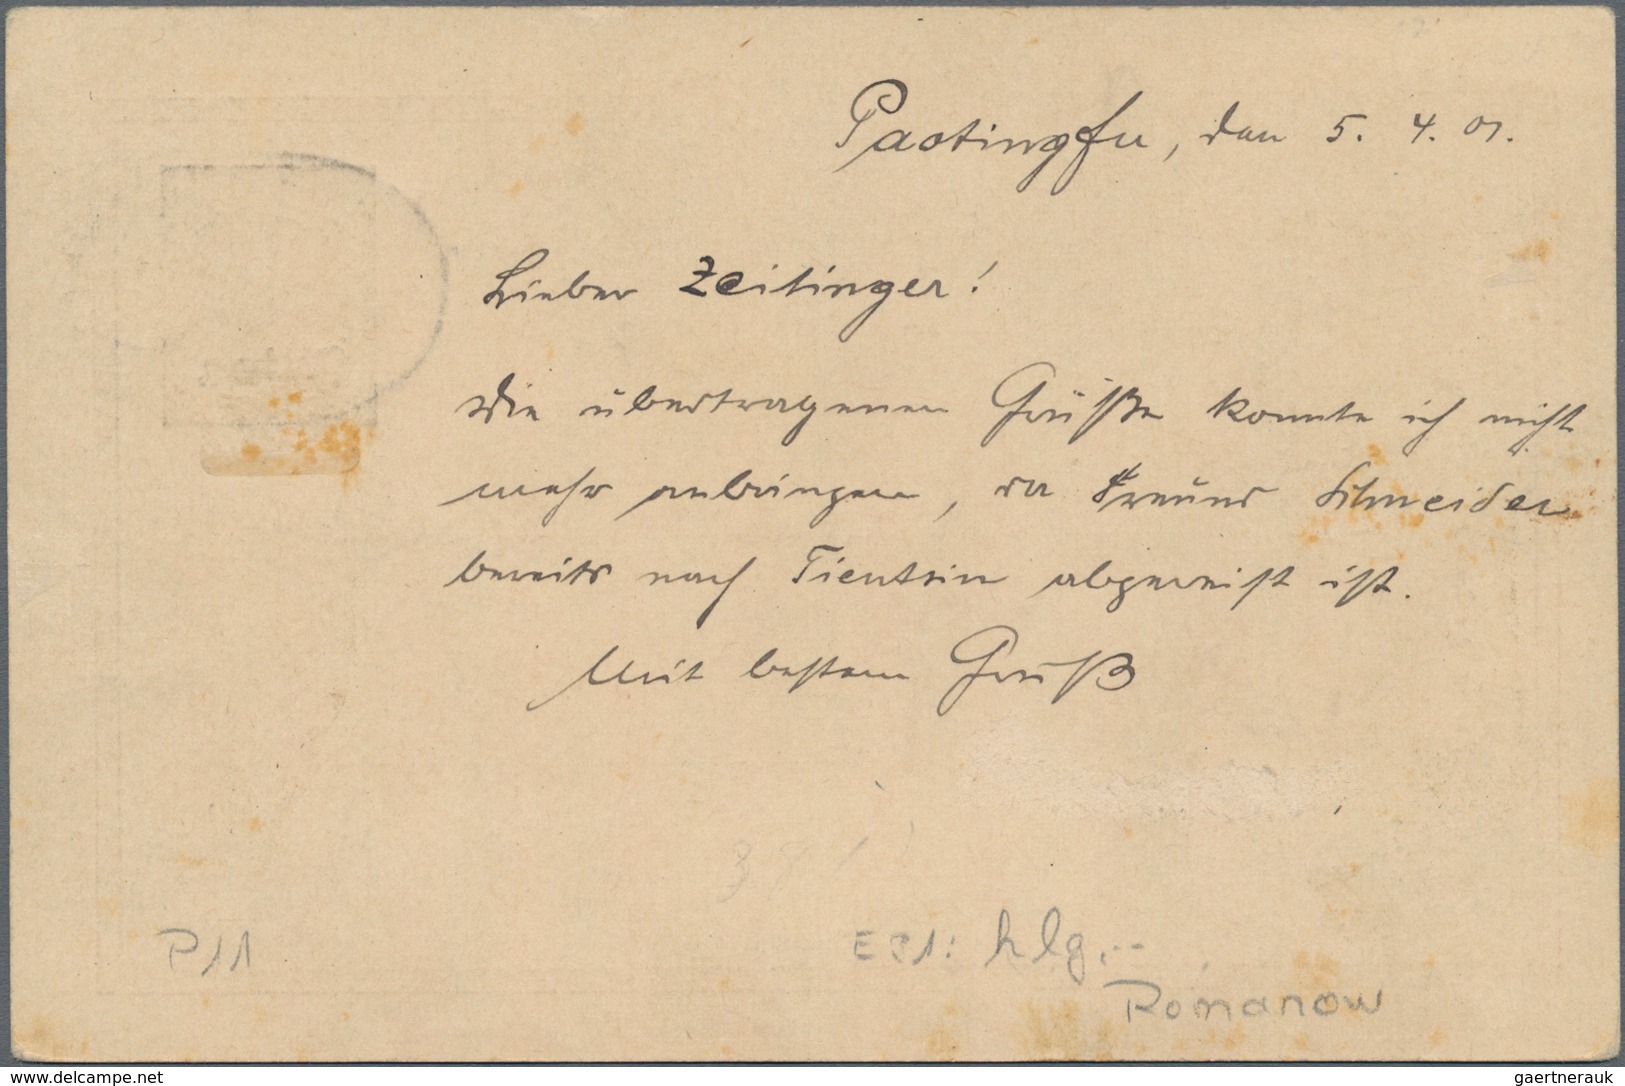 Paotingfu, den 5. 4. 01.
Lieber Zeitinger!
Die übertragenen Grüße konnte ich nicht
mehr anbringen, da Freund Schneider
bereits nach Tientsin abgereist ist.
Mit bestem Gruß
P11
hlg.--
Romanow
www.delcampe.net
gaertnerauk